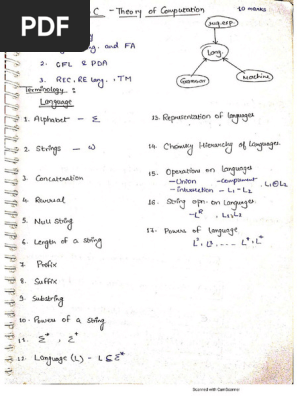 PDF
C - Theory of Computation
10 marks
reg.exp.
Lang.
Grammar
Machine
and FA
2. CFL & PDA
3. REC, RE lang., TM
Terminology :
Language
1. Alphabet - Σ
2. Strings - ω
3. Concatenation
4. Reversal
5. Null String
6. Length of a string
7. Prefix
8. Suffix
9. Substring
10. Powers of a string
11. Σ* , Σ+
12. Language (L) - L ⊆ Σ*
13. Representation of languages
14. Chomsky Hierarchy of Languages
15. Operation on languages
- Union - complement
- intersection - L1 - L2 , L1⊕L2
16. String opn. on Languages
17. Powers of language
Scanned with CamScanner